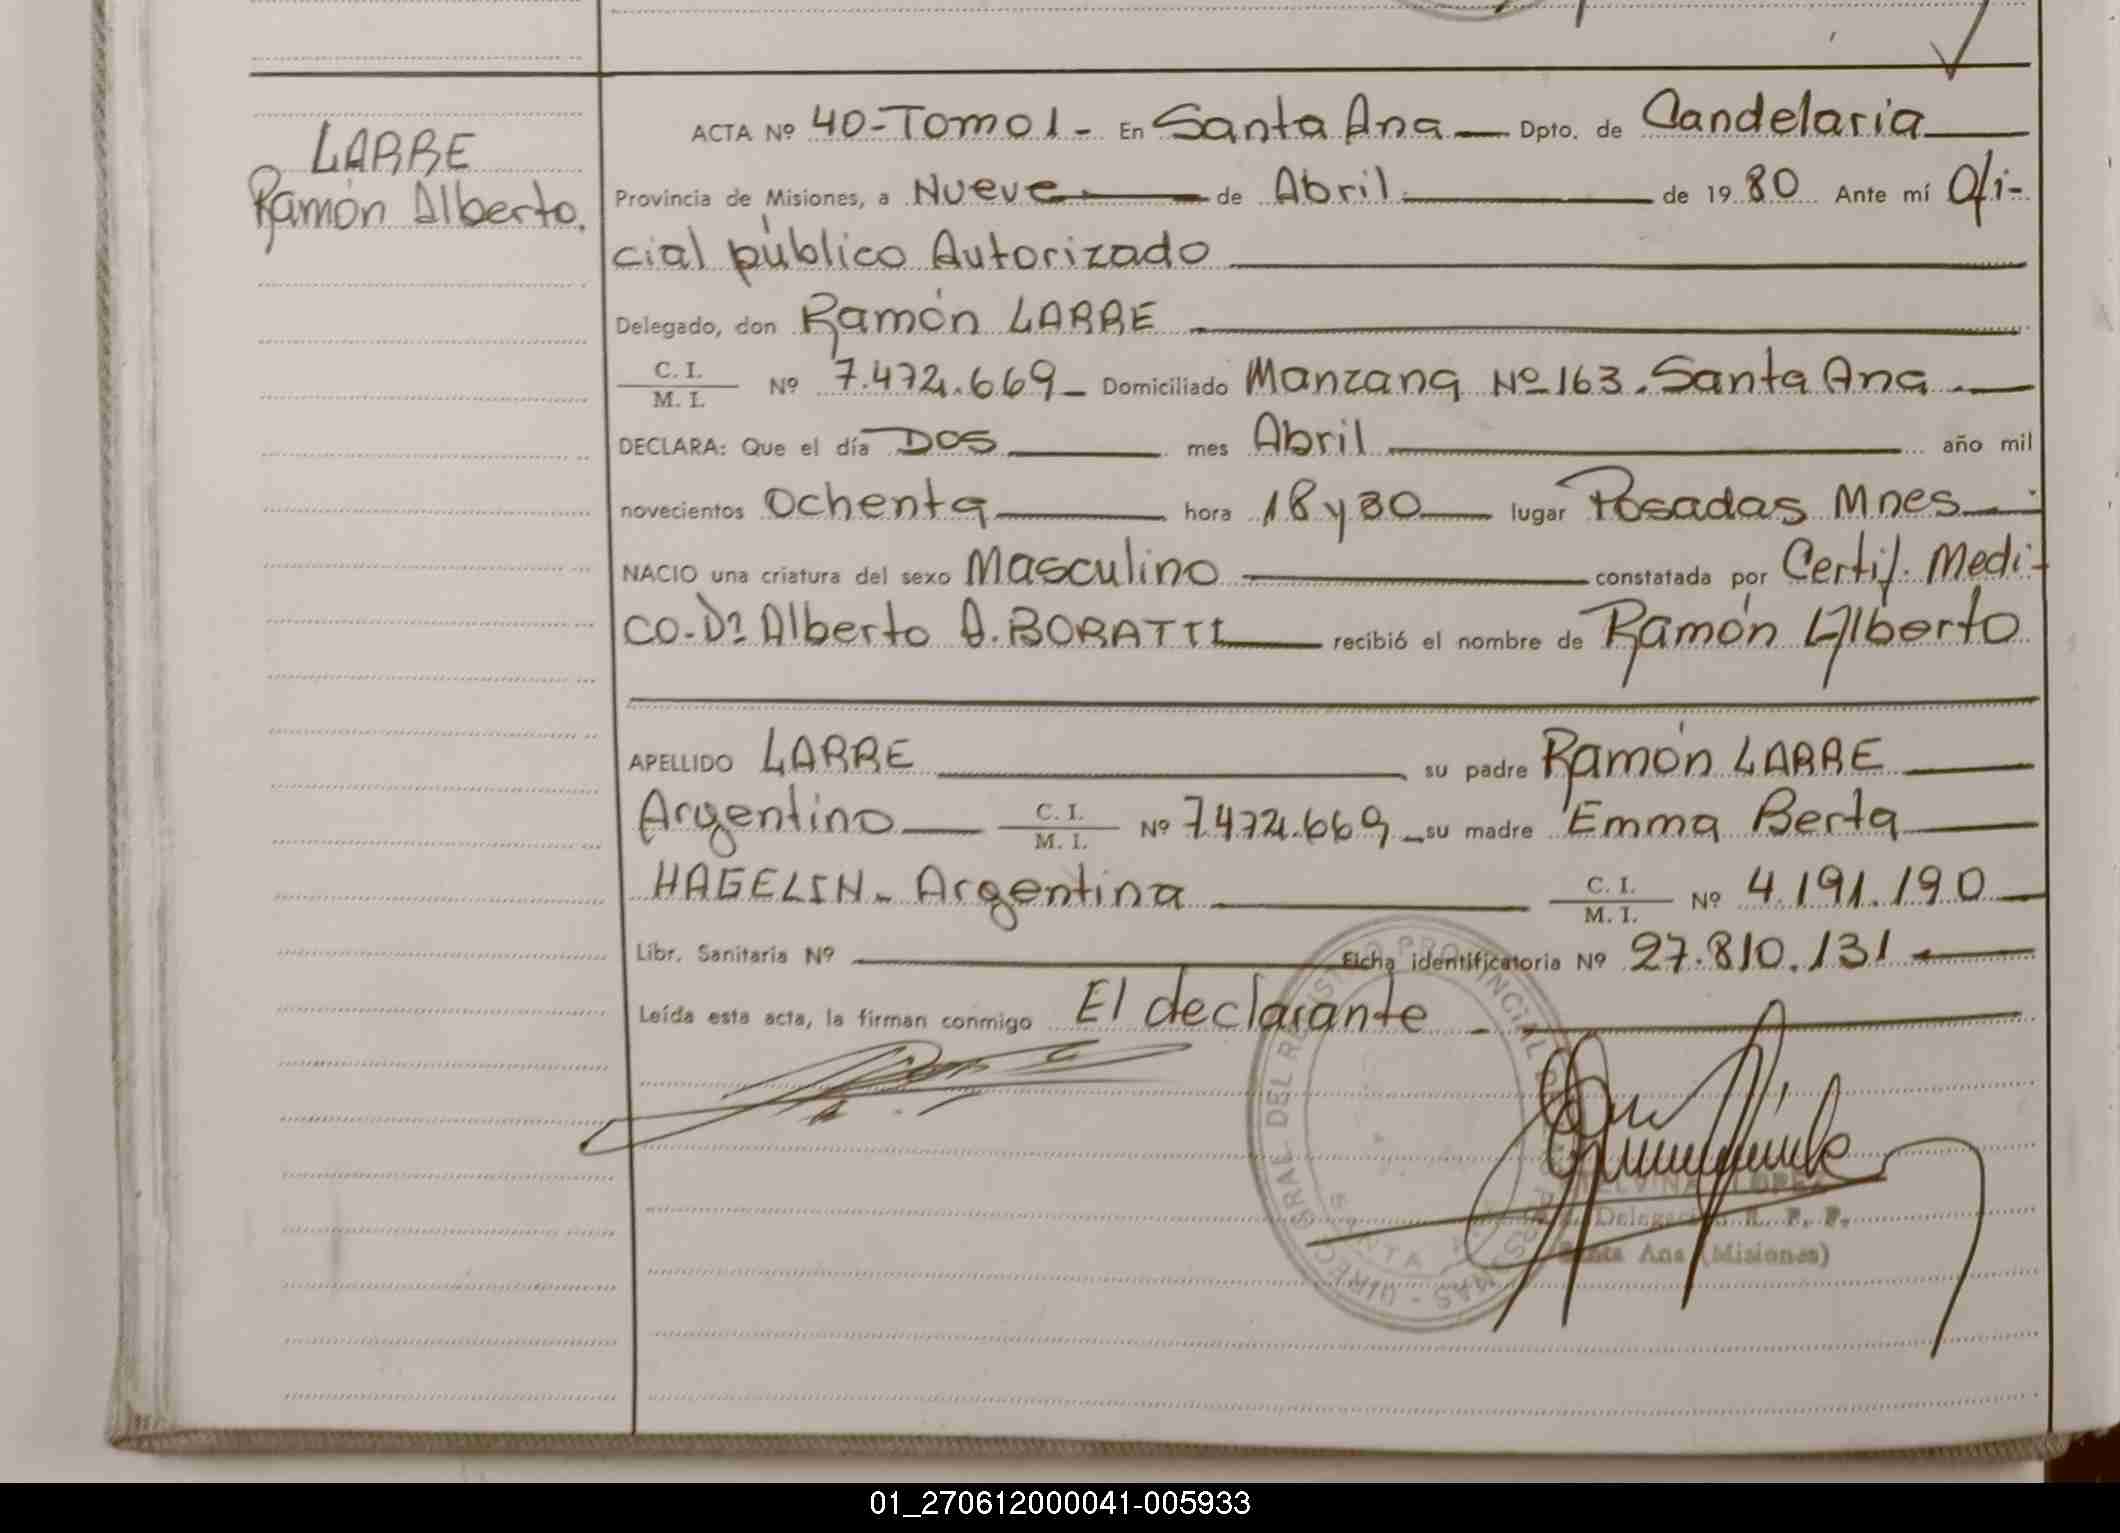 LARRE
Ramón Alberto.
ACTA Nº 40-Tomo 1- En Santa Ana Dpto. de Candelaria
Provincia de Misiones, a Nueve de Abril de 1980 Ante mí Ofi-
cial público Autorizado
Delegado, don Ramón LARRE
C. I.
M. I. Nº 7.472.669- Domiciliado Manzana Nº 163. Santa Ana
DECLARA: Que el día DOS mes Abril año mil
novecientos Ochenta hora 18 y 30 lugar Posadas Mnes
NACIO una criatura del sexo Masculino constatada por Certif. Medi-
co-Dr Alberto A. BORATTI recibió el nombre de Ramón Alberto
APELLIDO LARRE su padre Ramón LARRE
Argentino C. I.
M. I. Nº 7.472.669 su madre Emma Berta
HAGELIN- Argentina C. I.
M. I. Nº 4.191.190
Libr. Sanitaria Nº Ficha identificatoria Nº 27.810.131
Leída esta acta, la firman conmigo El declarante
LOPEZ
Delegación R. P. P.
Santa Ana (Misiones)
01_270612000041-005933